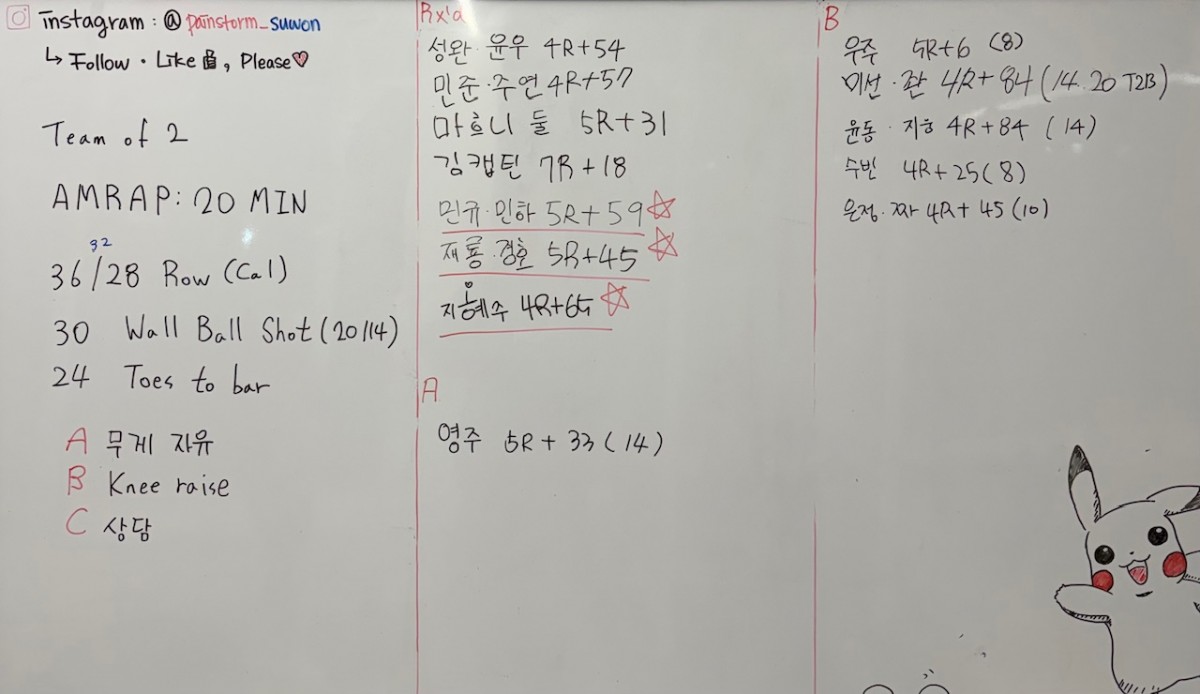 instagram : @ painstorm_suwon
↳ Follow · Like, Please♡
Team of 2
AMRAP: 20 MIN
32
36/28 Row (Cal)
30 Wall Ball Shot (20/14)
24 Toes to bar
A 무게 자유
B Knee raise
C 상담
Rx'a
성완 · 윤우 4R+54
민준 · 주연 4R+57
마흐니 둘 5R+31
김캡틴 7R+18
민규 · 민하 5R+59 ☆
재룡 · 경호 5R+45 ☆
지혜주 4R+65 ☆
A
영주 5R+33 (14)
B
우주 5R+6 (8)
미선 · 4R+84 (14. 20 T2B)
윤동 · 지호 4R+84 (14)
수빈 4R+25 (8)
은정 · 짜 4R+45 (10)